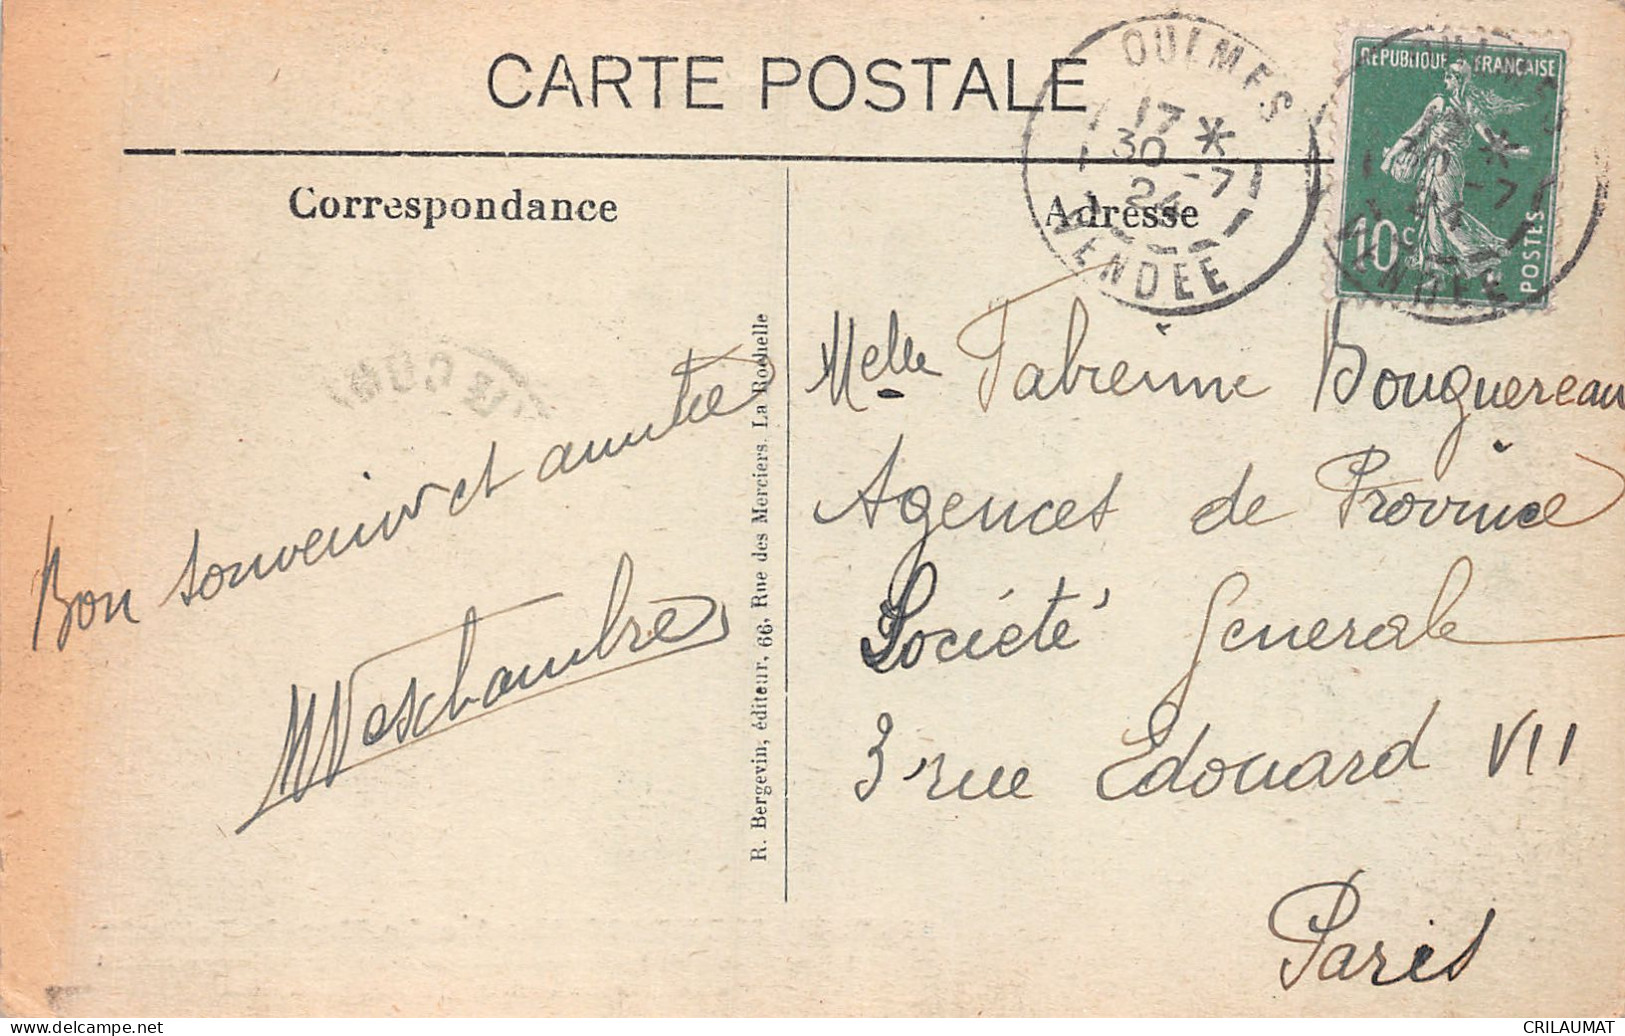 CARTE POSTALE
Correspondance
Adresse
OULMES
17 *
30 -7
24
VENDÉE
RÉPUBLIQUE FRANÇAISE
10c
POSTES
Bon souvenir et amitié
R. Bergevin, éditeur, 66, Rue des Merciers. La Rochelle
Melle Fabienne Bouquereau
Agences de Province
Société Generale
3 rue Edouard VII
Paris
www.delcampe.net
CRILAUMAT